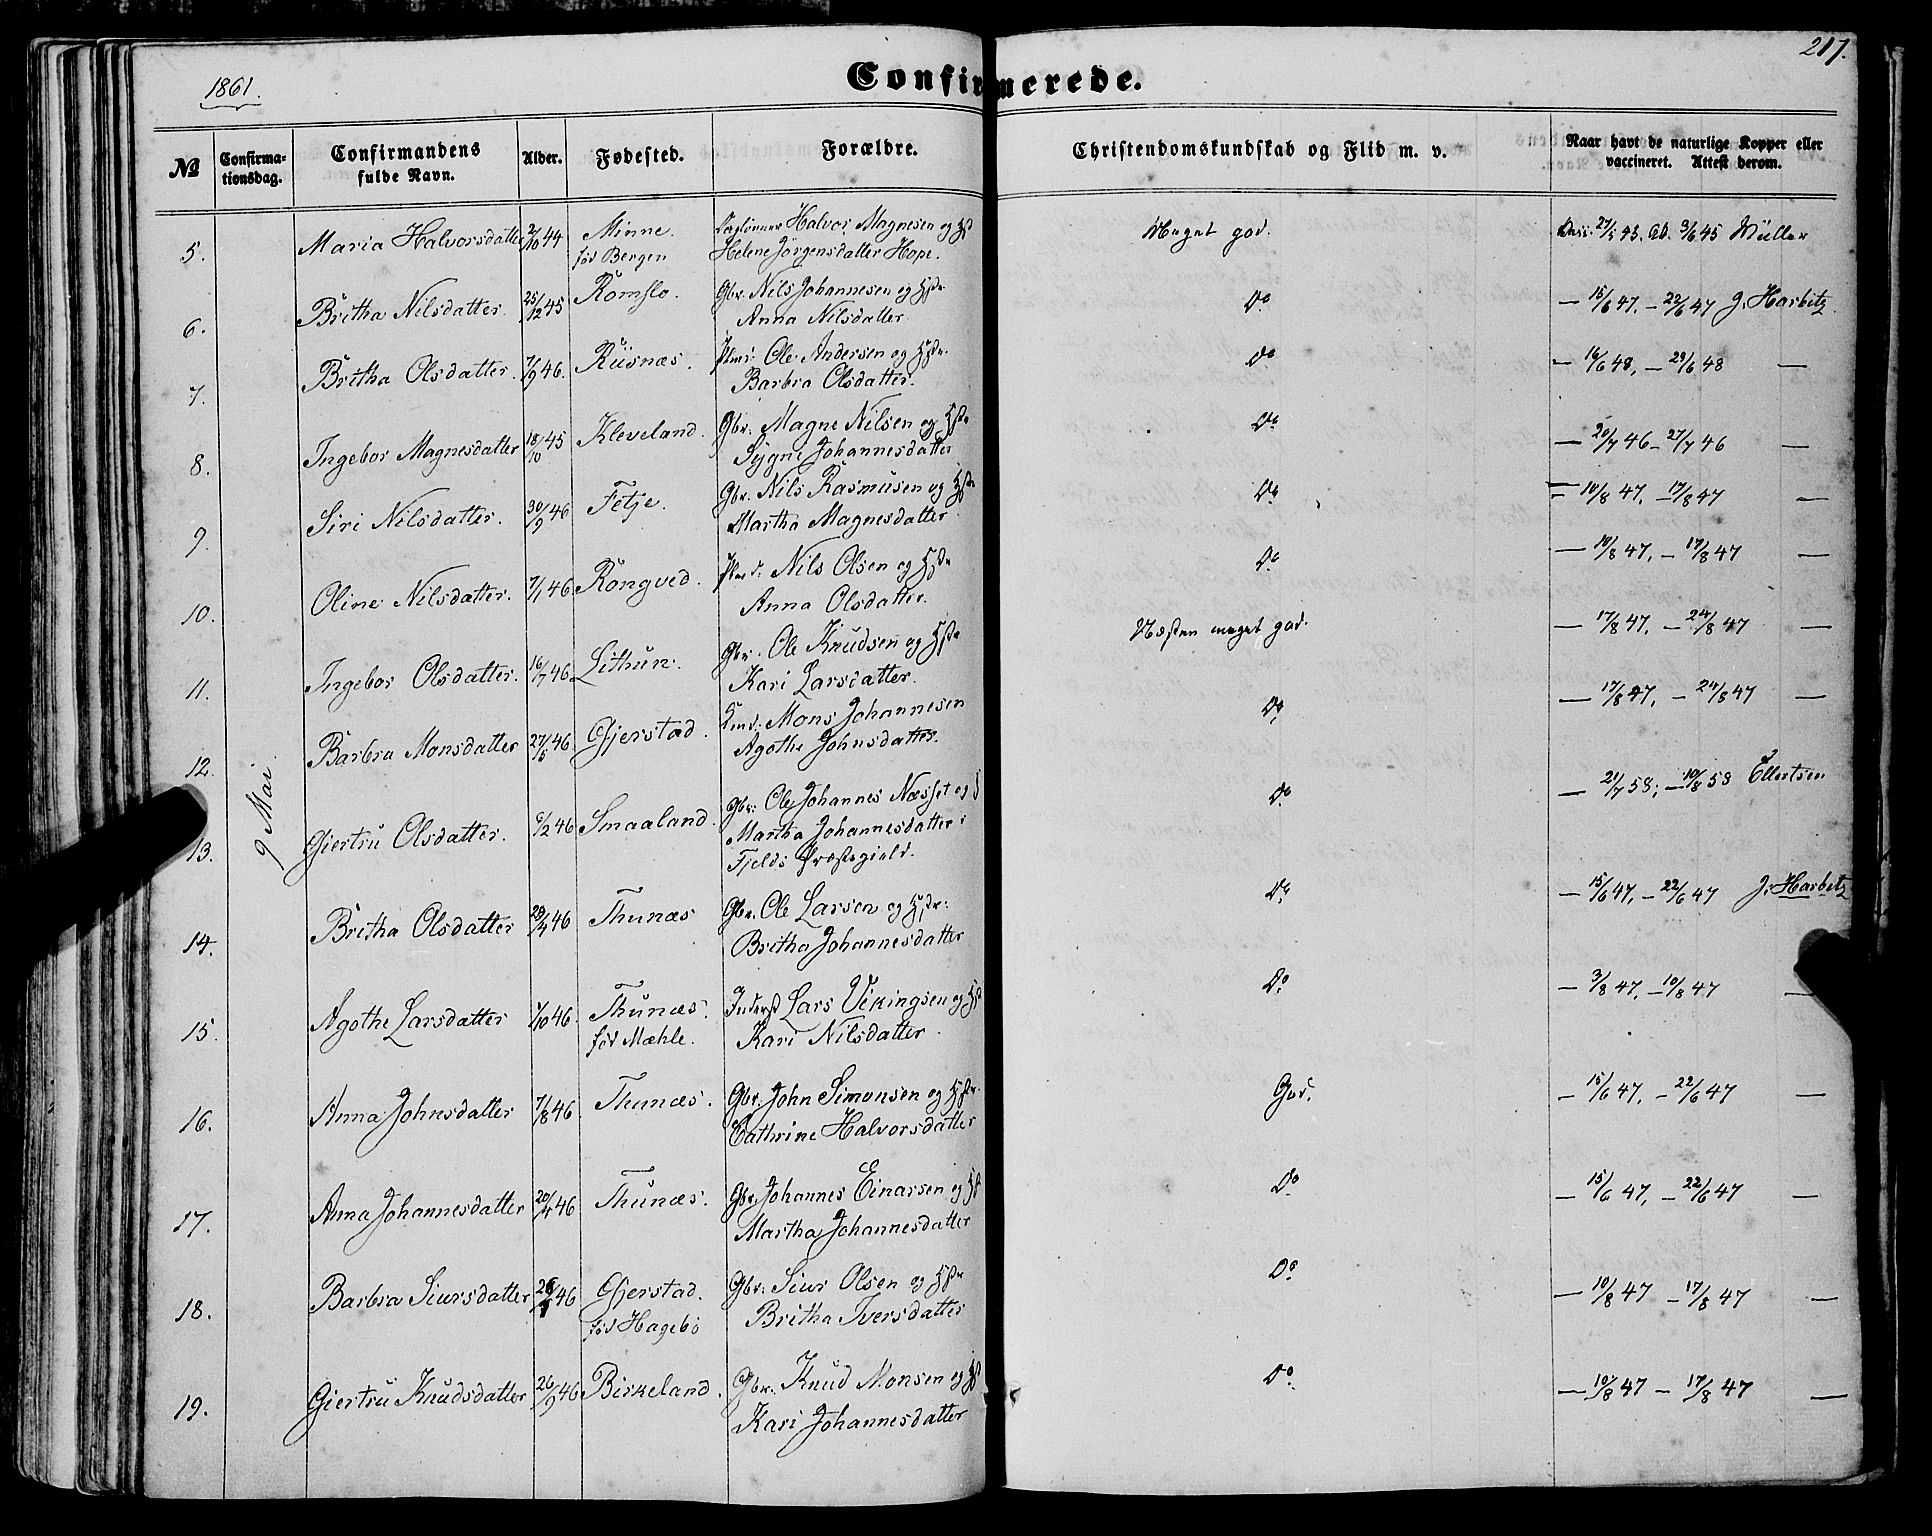 217.
1861.
Confirmerede.
№ Confirmationsdag. Confirmandens fulde Navn. Alder. Fødested. Forældre. Christendomskundskab og Flid m. v. Naar havt de naturlige Kopper eller vaccineret. Attest derom.
9 Mai
5. Maria Halvorsdatter 2/10 44 Minne. Halvor Magnesen og Meget god. 27/5 45. Ab. 3/6 45 Müller
fød Bergen Helene Jörgensdatter Hope.
6. Britha Nilsdatter. 25/12 45 Romslo. Gbr. Nils Johannesen og Hstr Do — 15/6 47. — 22/6 47 J. Harbitz
Anna Nilsdatter
7. Britha Olsdatter. 7/9 46. Riisnæs. Plmd: Ole Andersen og Hstr. Do — 16/6 48, — 23/6 48 —
Barbra Olsdatter.
8. Ingebor Magnesdatter 18/10 45 Kleveland. Gbr. Magne Nilsen og Hstr Do — 20/7 46 — 27/7 46 —
Sygni Johannesdatter
9. Siri Nilsdatter. 30/9 46 Fetje. Gbr. Nils Rasmusen og Hstr Do — 10/8 47, — 17/8 47 —
Martha Magnesdatter
10. Oline Nilsdatter. 7/1 46 Rongved. Plmd: Nils Olsen og Hstr Do — 10/8 47, — 17/8 47 —
Anna Olsdatter.
11. Ingebor Olsdatter. 16/7 46 Lithun. Gbr. Ole Knudsen og Hstr Næsten meget god. — 17/8 47, — 24/8 47 —
Kari Larsdatter.
12. Barbra Monsdatter 27/5 46. Gjerstad. Mons Johannesen Do — 17/8 47, — 24/8 47 —
Agothe Johnsdatter.
13. Gjertru Olsdatter. 6/2 46 Smaaland. Gbr: Ole Johannes Næsset og Do — 21/7 58; — 10/8 58 Ellertsen
Martha Johannesdatter i
Fjelds Præstegield.
14. Britha Olsdatter 28/4 46 Thunæs Gbr. Ole Larsen og Hstr: Do — 15/6 47, — 22/6 47 J. Harbitz
Britha Johannesdatter
15. Agothe Larsdatter 1/10 46. Thunæs. Inderst Lars Vikingsen og Hst Do — 3/8 47, — 10/8 47 —
fød Mæhle. Kari Nilsdatter.
16. Anna Johnsdatter 7/8 46 Thunæs. Gbr. John Simonsen og Hstr. God. — 15/6 47, — 22/6 47 —
Cathrine Halvorsdatter
17. Anna Johannesdatter 20/4 46 Thunæs. Gbr. Johannes Einarsen og Hst Do — 15/6 47, — 22/6 47 —
Martha Johannesdatter
18. Barbra Siursdatter 46 Gjerstad. Gbr: Siur Olsen og Hstr Do — 10/8 47 — 17/8 47 —
fød Hagebö Britha Iversdatter
19. Gjertru Knudsdatter 26/9 46 Birkeland. Gbr. Knud Monsen og Hst Do — 10/8 47 — 17/8 47 —
Kari Johannesdatter